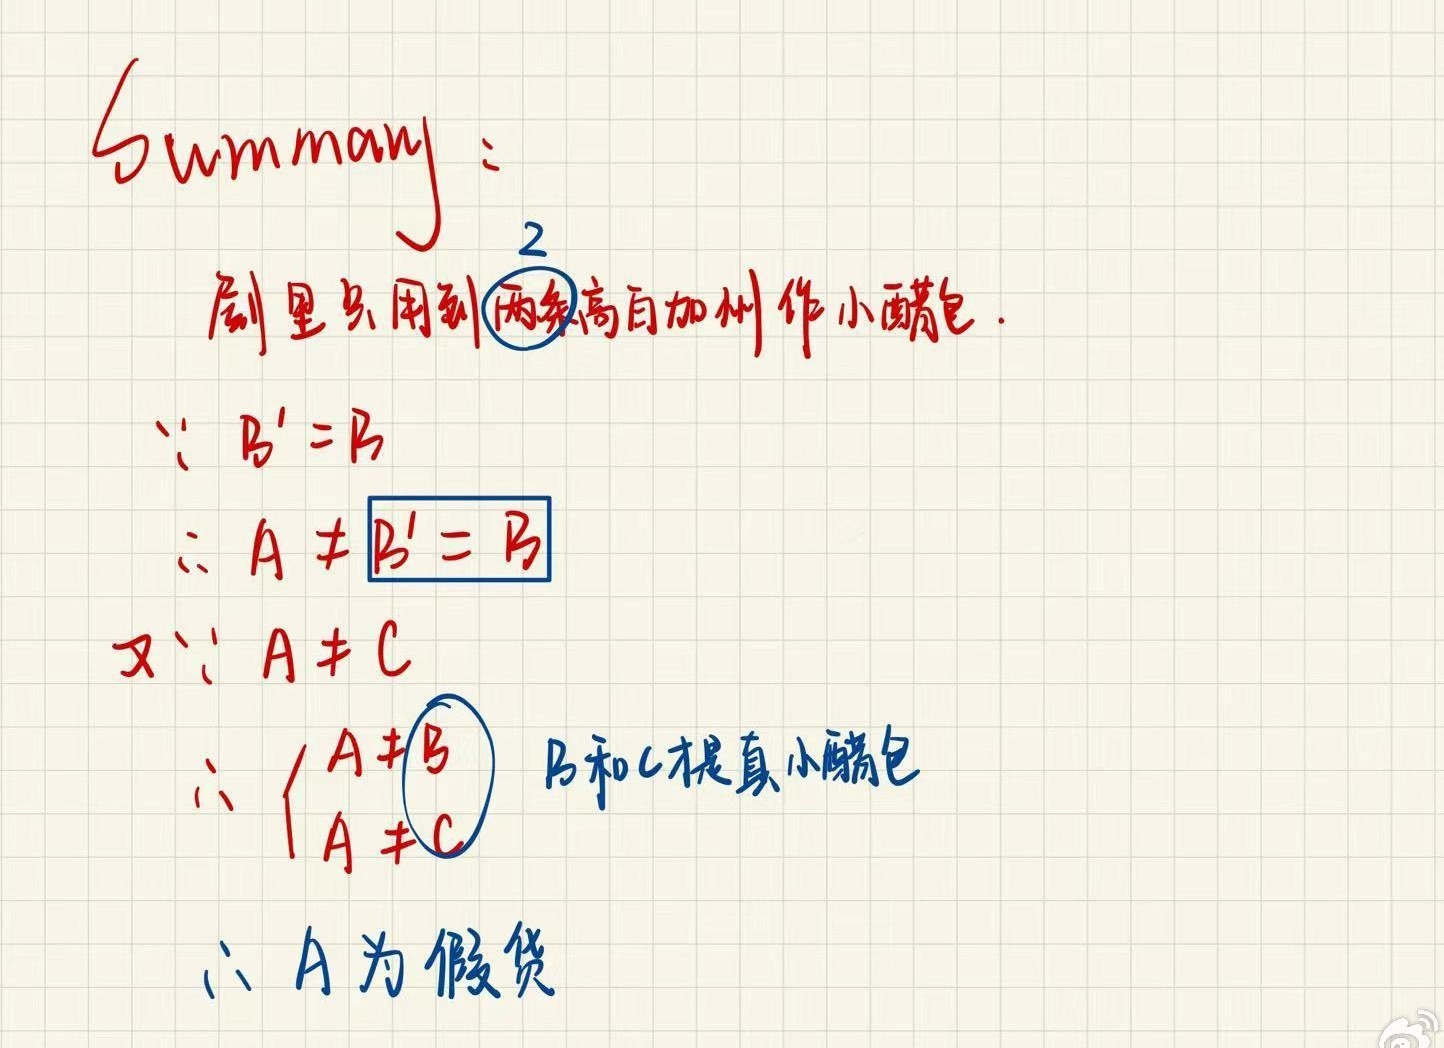 Summary:
2
剧里只用到两条高白加州作小醋包.
∵ B' = B
∴ A ≠ B' = B
又∵ A ≠ C
∴ { A ≠ B
A ≠ C
B和C才是真小醋包
∴ A为假货